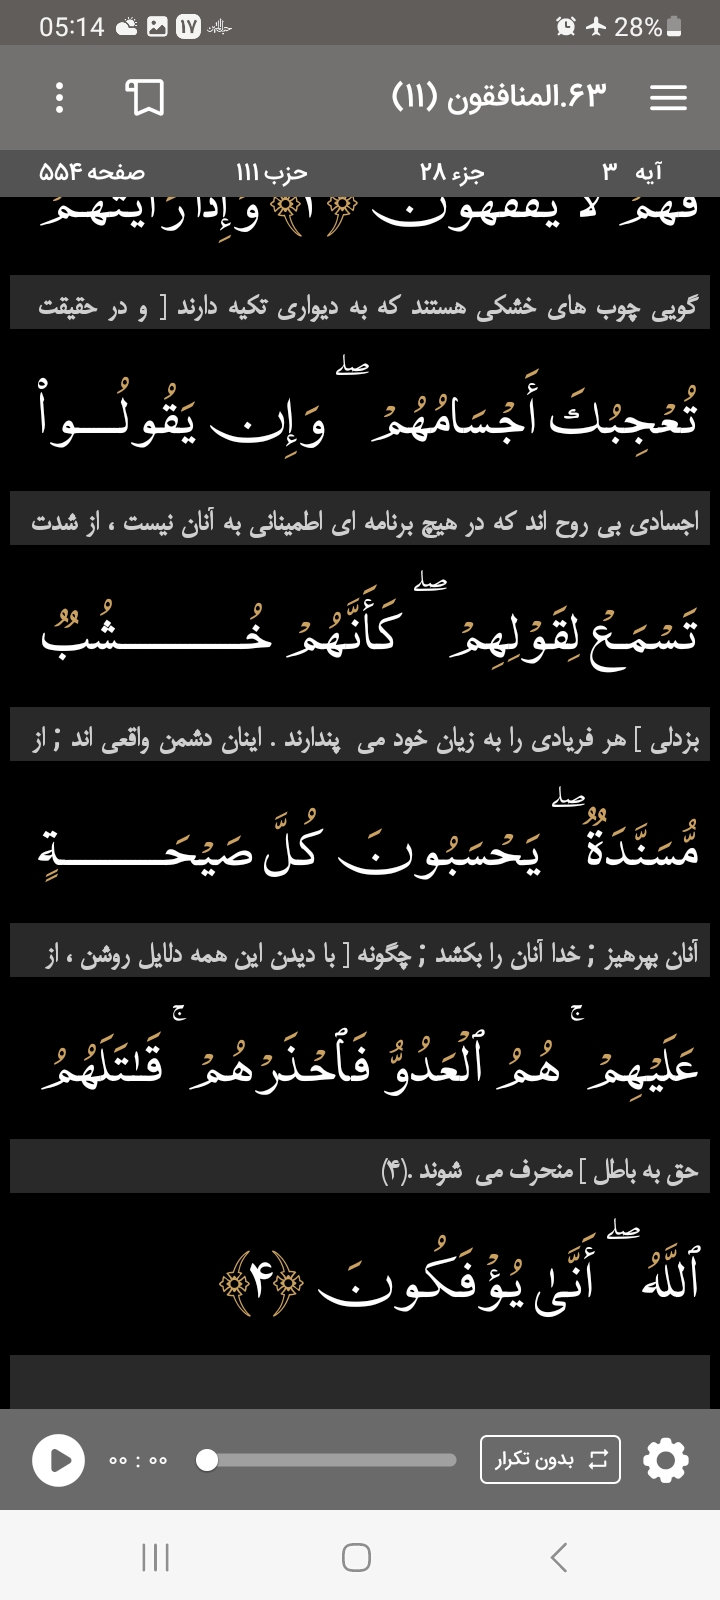 05:14 ۱۷ 28%
۶۳.المنافقون (۱۱)
آیه ۳ جزء ۲۸ حزب ۱۱۱ صفحه ۵۵۴
فَهُمْ لَا يَفْقَهُونَ ﴿۳﴾ وَإِذَا رَأَيْتَهُمْ
گویی چوب های خشکی هستند که به دیواری تکیه دارند [ و در حقیقت
تُعْجِبُكَ أَجْسَامُهُمْ ۖ وَإِن يَقُولُواْ
اجسادی بی روح اند که در هیچ برنامه ای اطمینانی به آنان نیست ، از شدت
تَسْمَعْ لِقَوْلِهِمْ ۖ كَأَنَّهُمْ خُشُبٌ
بزدلی ] هر فریادی را به زیان خود می پندارند . اینان دشمن واقعی اند ; از
مُّسَنَّدَةٌ ۖ يَحْسَبُونَ كُلَّ صَيْحَةٍ
آنان بپرهیز ; خدا آنان را بکشد ; چگونه [ با دیدن این همه دلایل روشن ، از
عَلَيْهِمْ ۚ هُمُ ٱلْعَدُوُّ فَٱحْذَرْهُمْ ۚ قَٰتَلَهُمُ
حق به باطل ] منحرف می شوند .(۴)
ٱللَّهُ ۖ أَنَّىٰ يُؤْفَكُونَ ﴿۴﴾
۰۰ : ۰۰ بدون تکرار